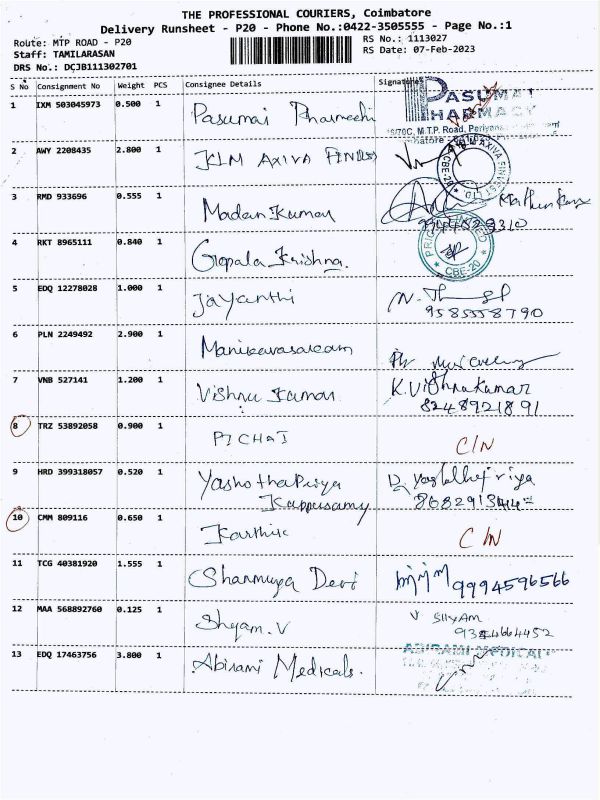 THE PROFESSIONAL COURIERS, Coimbatore
Delivery Runsheet - P20 - Phone No.:0422-3505555 - Page No.:1
Route: MTP ROAD - P20
RS No.: 1113027
Staff: TAMILARASAN
RS Date: 07-Feb-2023
DRS No.: DCJB111302701
S No Consignment No Weight PCS Consignee Details Signature
1 IXM 503045973 0.500 1 Pasumai Pharmechi
PASUMAI
PHARMACY
M.T.P. Road,
2 AWY 2208435 2.800 1 KLM AXIVA FINVEST
AXIVA FINVEST LTD CBE-20
3 RMD 933696 0.555 1 Madan Kumar
4 RKT 8965111 0.840 1 Gopala Krishna.
CBE-20
5 EDQ 12278028 1.000 1 Jayanthi
9585558790
6 PLN 2249492 2.900 1 Manikavasakam
7 VNB 527141 1.200 1 Vishnu Kumar K.Vishnukumar
8248921891
8 TRZ 53892058 0.900 1 PICHAI C/N
9 HRD 399318057 0.520 1 YashothaPriya
Kuppusamy
10 CMM 809116 0.650 1 Karthik C/N
11 TCG 40381920 1.555 1 Shanmuga Devi 9994596566
12 MAA 568892760 0.125 1 Shyam.V V SHYAM
13 EDQ 17463756 3.800 1 Abirami Medicals.
ABIRAMI MEDICAL